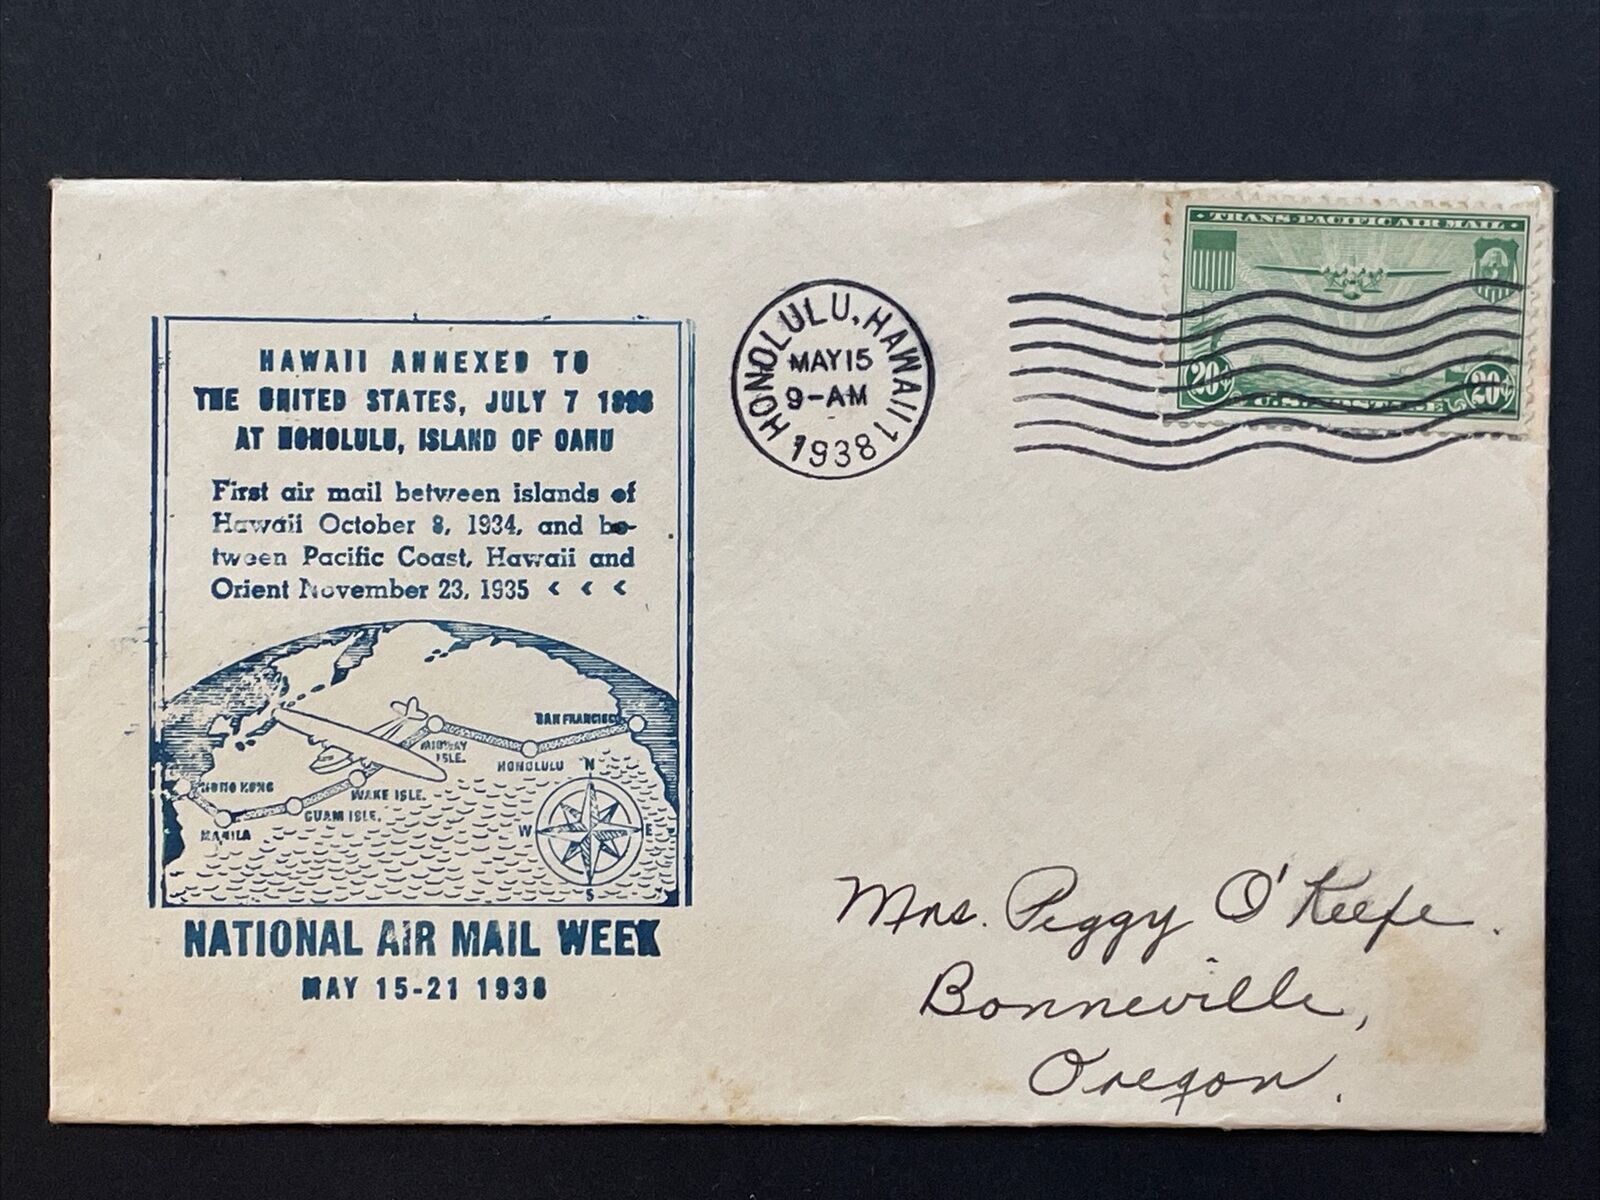 HAWAII ANNEXED TO
THE UNITED STATES, JULY 7 1898
AT HONOLULU, ISLAND OF OAHU
First air mail between islands of
Hawaii October 8, 1934, and be-
tween Pacific Coast, Hawaii and
Orient November 23, 1935 < < <
SAN FRANCISCO
MIDWAY
ISLE.
HONOLULU
N
HONG KONG
WAKE ISLE.
GUAM ISLE.
MANILA
W
E
S
NATIONAL AIR MAIL WEEK
MAY 15-21 1938
HONOLULU, HAWAII 1
MAY 15
9-AM
1938
TRANS-PACIFIC AIR MAIL
20¢
20¢
U.S. POSTAGE
Mrs. Peggy O'Keefe.
Bonneville,
Oregon.